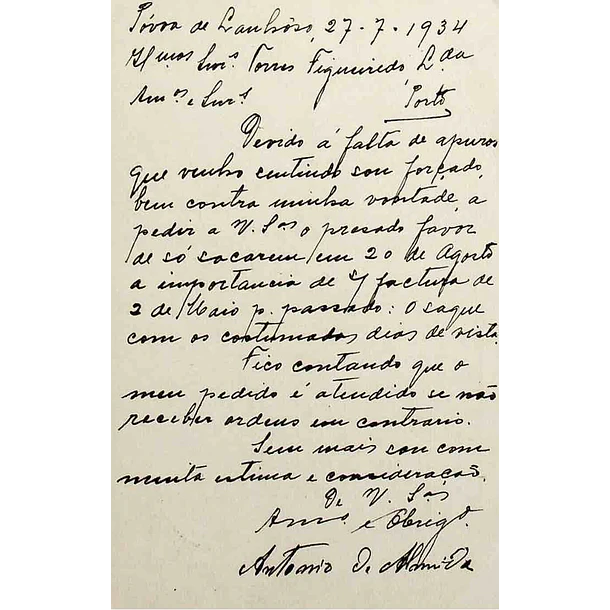 Póvoa de Lanhoso, 27-7-1934
Il.mos Snrs. Torres Figueiredo, L.da
Am.os e Snrs. Porto
Devido á falta de apuros
que venho sentindo sou forçado,
bem contra minha vontade, a
pedir a V. S.as o presado favor
de só sacarem em 20 de Agosto
a importancia de s/ factura de
2 de Maio p. passado: O saque
com os costumados dias de vista.
Fico contando que o
meu pedido é atendido se não
receber ordens em contrario.
Sem mais sou com
muita estima e consideração.
De V. S.as
Am.o e Obrig.o
Antonio de Almeida